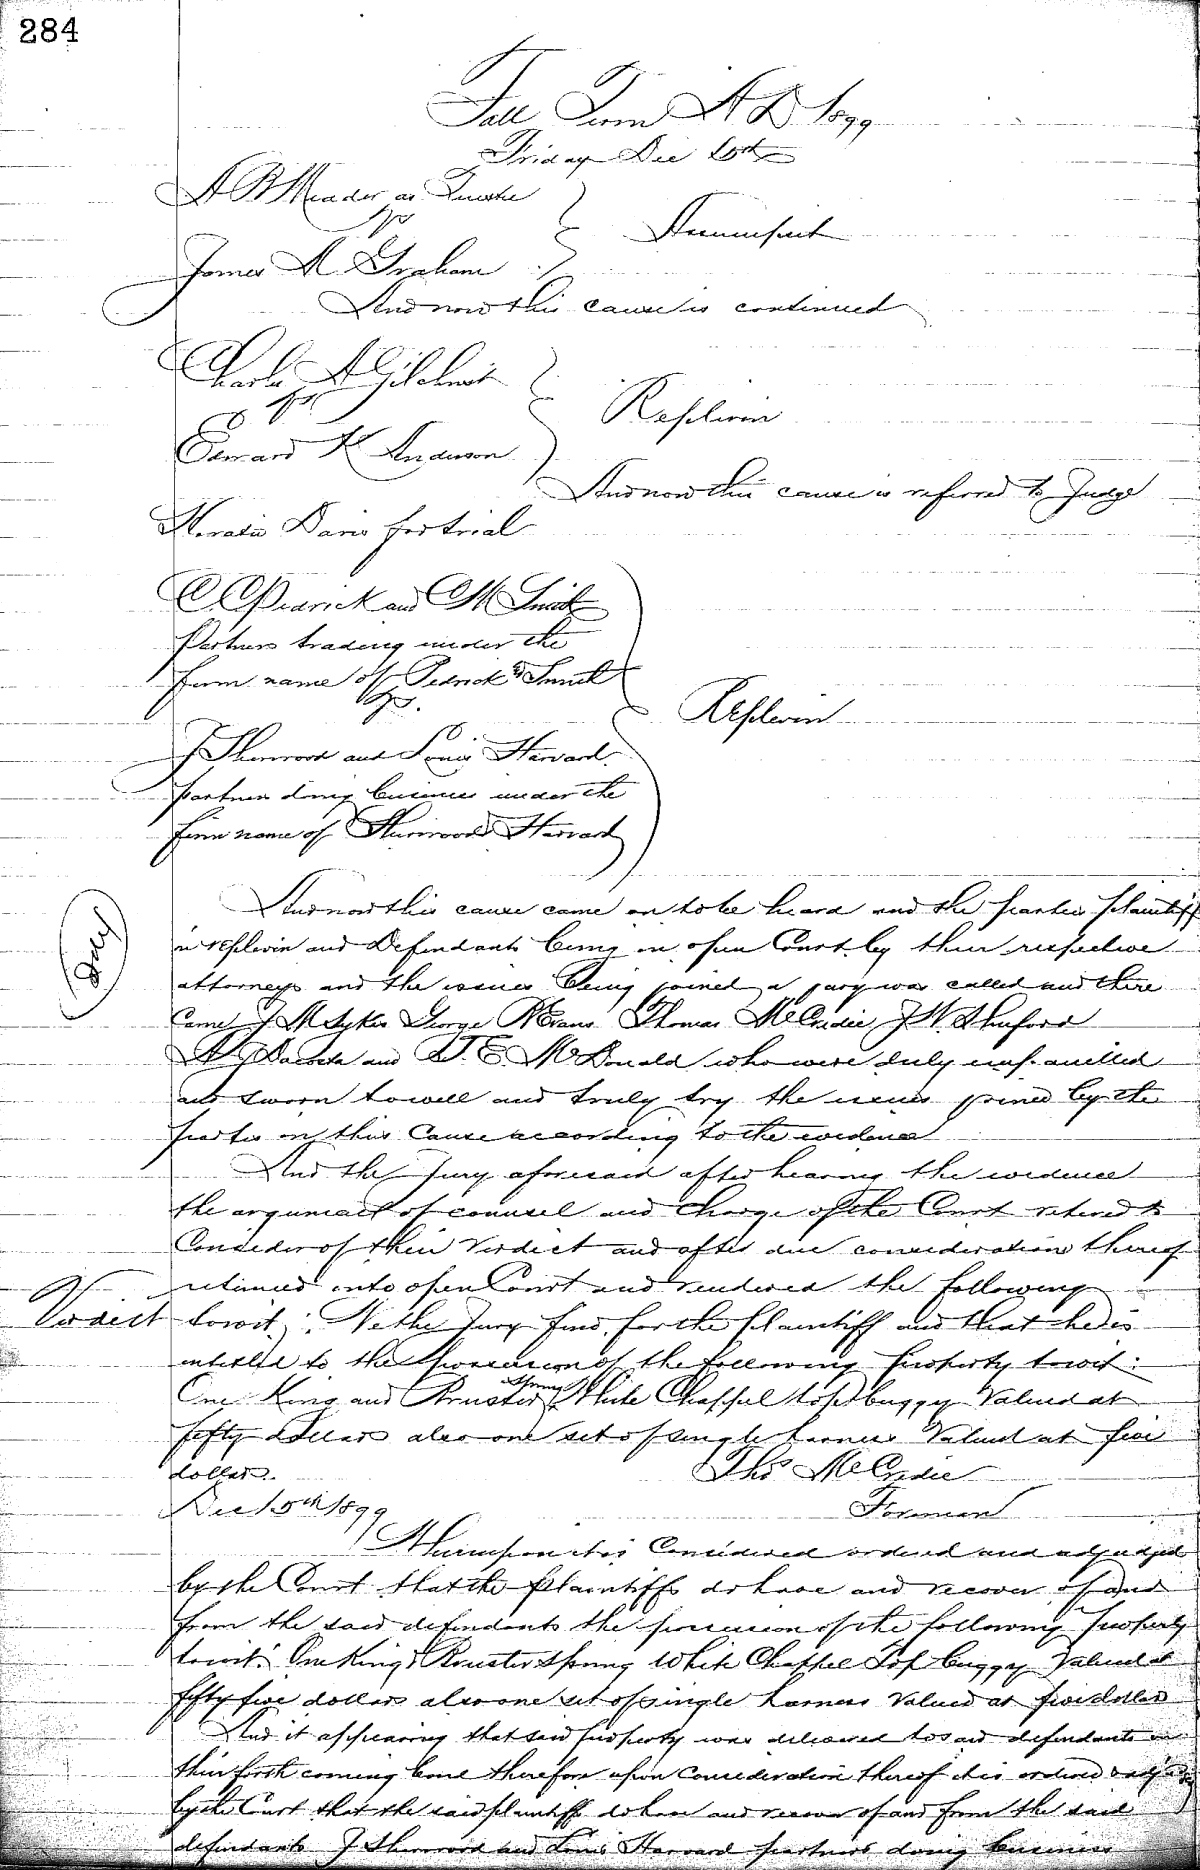 284
Fall Term A D 1899
Friday Dec 15th
A B Meador as Trustee
vs
Assumpsit
James M. Graham
And now this cause is continued
Charles A Gilchrist
vs
Replevin
Edward K Anderson
And now this cause is referred to Judge
Horatio Davis for trial
C C Pedrick and M Smith
Partners trading under the
firm name of Pedrick & Smith
vs.
Replevin
J Sherwood and Louis Harvard
partners doing business under the
firm name of Sherwood & Harvard
And now this cause came on to be heard and the parties plaintiff
in replevin and Defendants being in open Court by their respective
attorneys and the issues being joined a jury was called and there
Jury
Came J M Sykes George Evans Thomas McCredie J W
and McDonald who were duly impanelled
and sworn to well and truly try the issues joined by the
parties in this Cause according to the evidence
And the Jury aforesaid after hearing the evidence
the argument of counsel and Charge of the Court retired to
Consider of their Verdict and after due consideration thereof
returned into open Court and rendered the following
Verdict
towit; We the Jury find for the plaintiff and that he is
entitled to the possession of the following property towit:
One King and Bruster Spring White Chappel top buggy Valued at
fifty dollars also one set of single harness Valued at five
dollars.
Thos McCredie
Dec 15th 1899
Foreman
Whereupon it is Considered ordered and adjudged
by the Court that the plaintiffs do have and recover of and
from the said defendants the possession of the following property
towit: One King & Bruster Spring White Chappel Top buggy Valued at
fifty five dollars also one set of single harness Valued at five dollars
And it appearing that said property was delivered to said defendants on
their forth coming bond therefore upon Consideration thereof it is ordered
by the Court that the said plaintiffs do have and recover of and from the said
defendants J Sherwood and Louis Harvard partners doing business